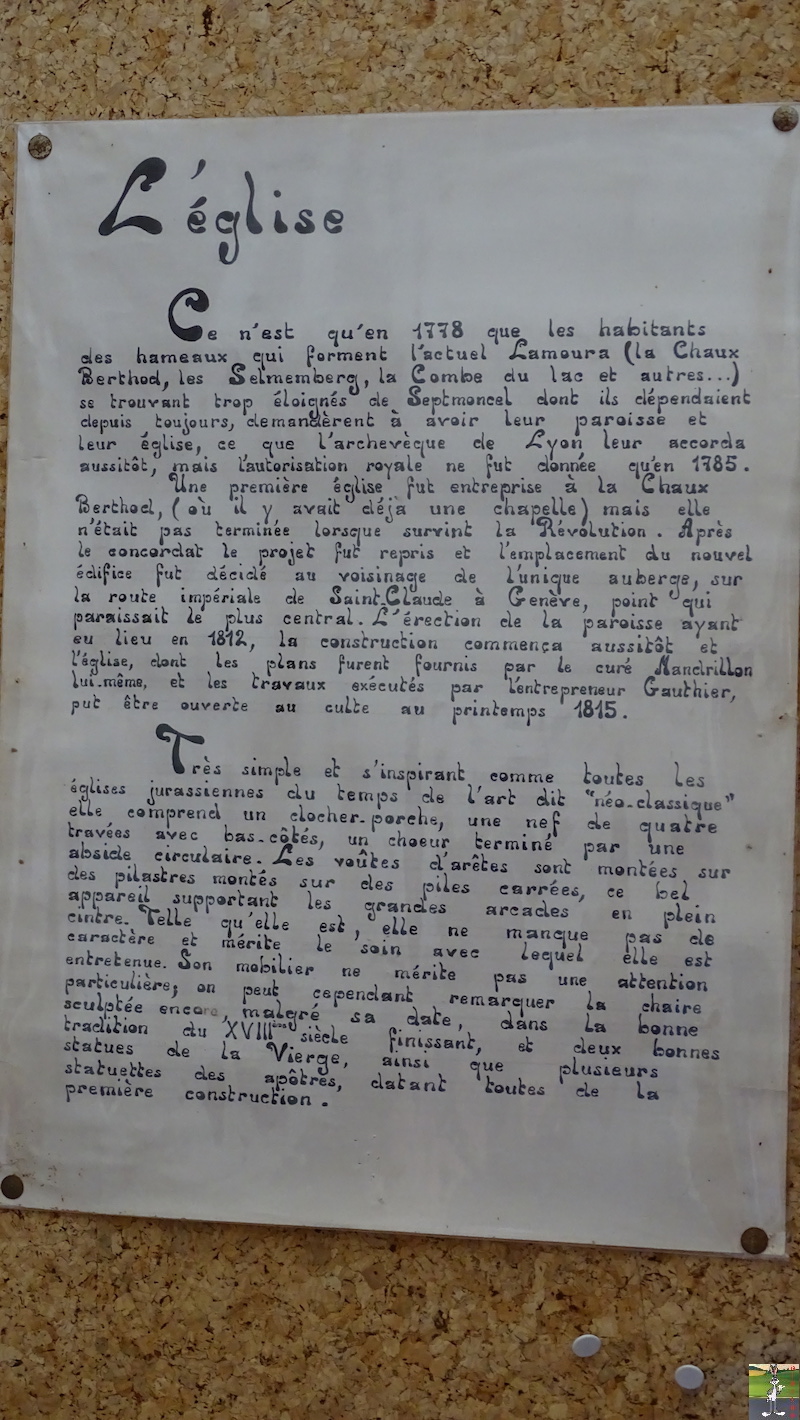 L'église
Ce n'est qu'en 1778 que les habitants
des hameaux qui forment l'actuel Lamoura (la Chaux
Berthod, les Selmemberg, la Combe du lac et autres...)
se trouvant trop éloignés de Septmoncel dont ils dépendaient
depuis toujours, demandèrent à avoir leur paroisse et
leur église, ce que l'archevèque de Lyon leur accorda
aussitôt, mais l'autorisation royale ne fut donnée qu'en 1785.
Une première église fut entreprise à la Chaux
Berthod, (où il y avait déjà une chapelle) mais elle
n'était pas terminée lorsque survint la Révolution. Après
le concordat le projet fut repris et l'emplacement du nouvel
édifice fut décidé au voisinage de l'unique auberge, sur
la route impériale de Saint-Claude à Genève, point qui
paraissait le plus central. L'érection de la paroisse ayant
eu lieu en 1812, la construction commença aussitôt et
l'église, dont les plans furent fournis par le curé Mandrillon
lui-même, et les travaux exécutés par l'entrepreneur Gauthier,
put être ouverte au culte au printemps 1815.
Très simple et s'inspirant comme toutes les
églises jurassiennes du temps de l'art dit "néo-classique"
elle comprend un clocher-porche, une nef de quatre
travées avec bas-côtés, un choeur terminé par une
abside circulaire. Les voûtes d'arêtes sont montées sur
des pilastres montés sur des piles carrées, ce bel
appareil supportant les grandes arcades en plein
cintre. Telle qu'elle est, elle ne manque pas de
caractère et mérite le soin avec lequel elle est
entretenue. Son mobilier ne mérite pas une attention
particulière; on peut cependant remarquer la chaire
sculptée encore, malgré sa date, dans la bonne
tradition du XVIIIème siècle finissant, et deux bonnes
statues de la Vierge, ainsi que plusieurs
statuettes des apôtres, datant toutes de la
première construction.